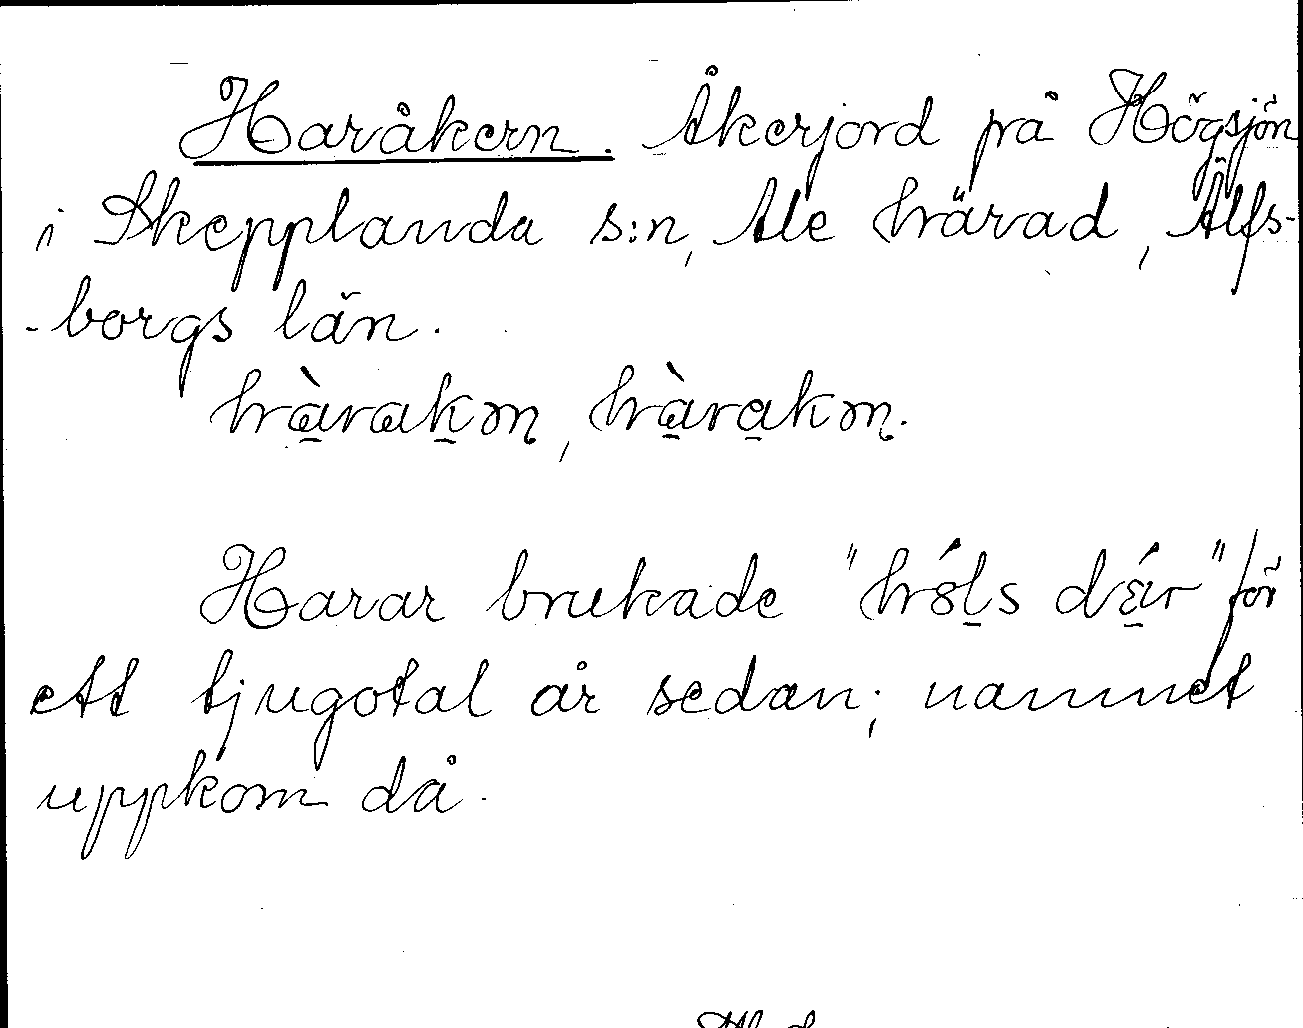 Haråkern. Åkerjord på Högsjön
i Skepplanda s:n, Ale härad, Älfs-
-borgs län.
hàrakm, hàrakm.
Harar brukade "hóls dǽr" för
ett tjugotal år sedan; namnet
uppkom då.